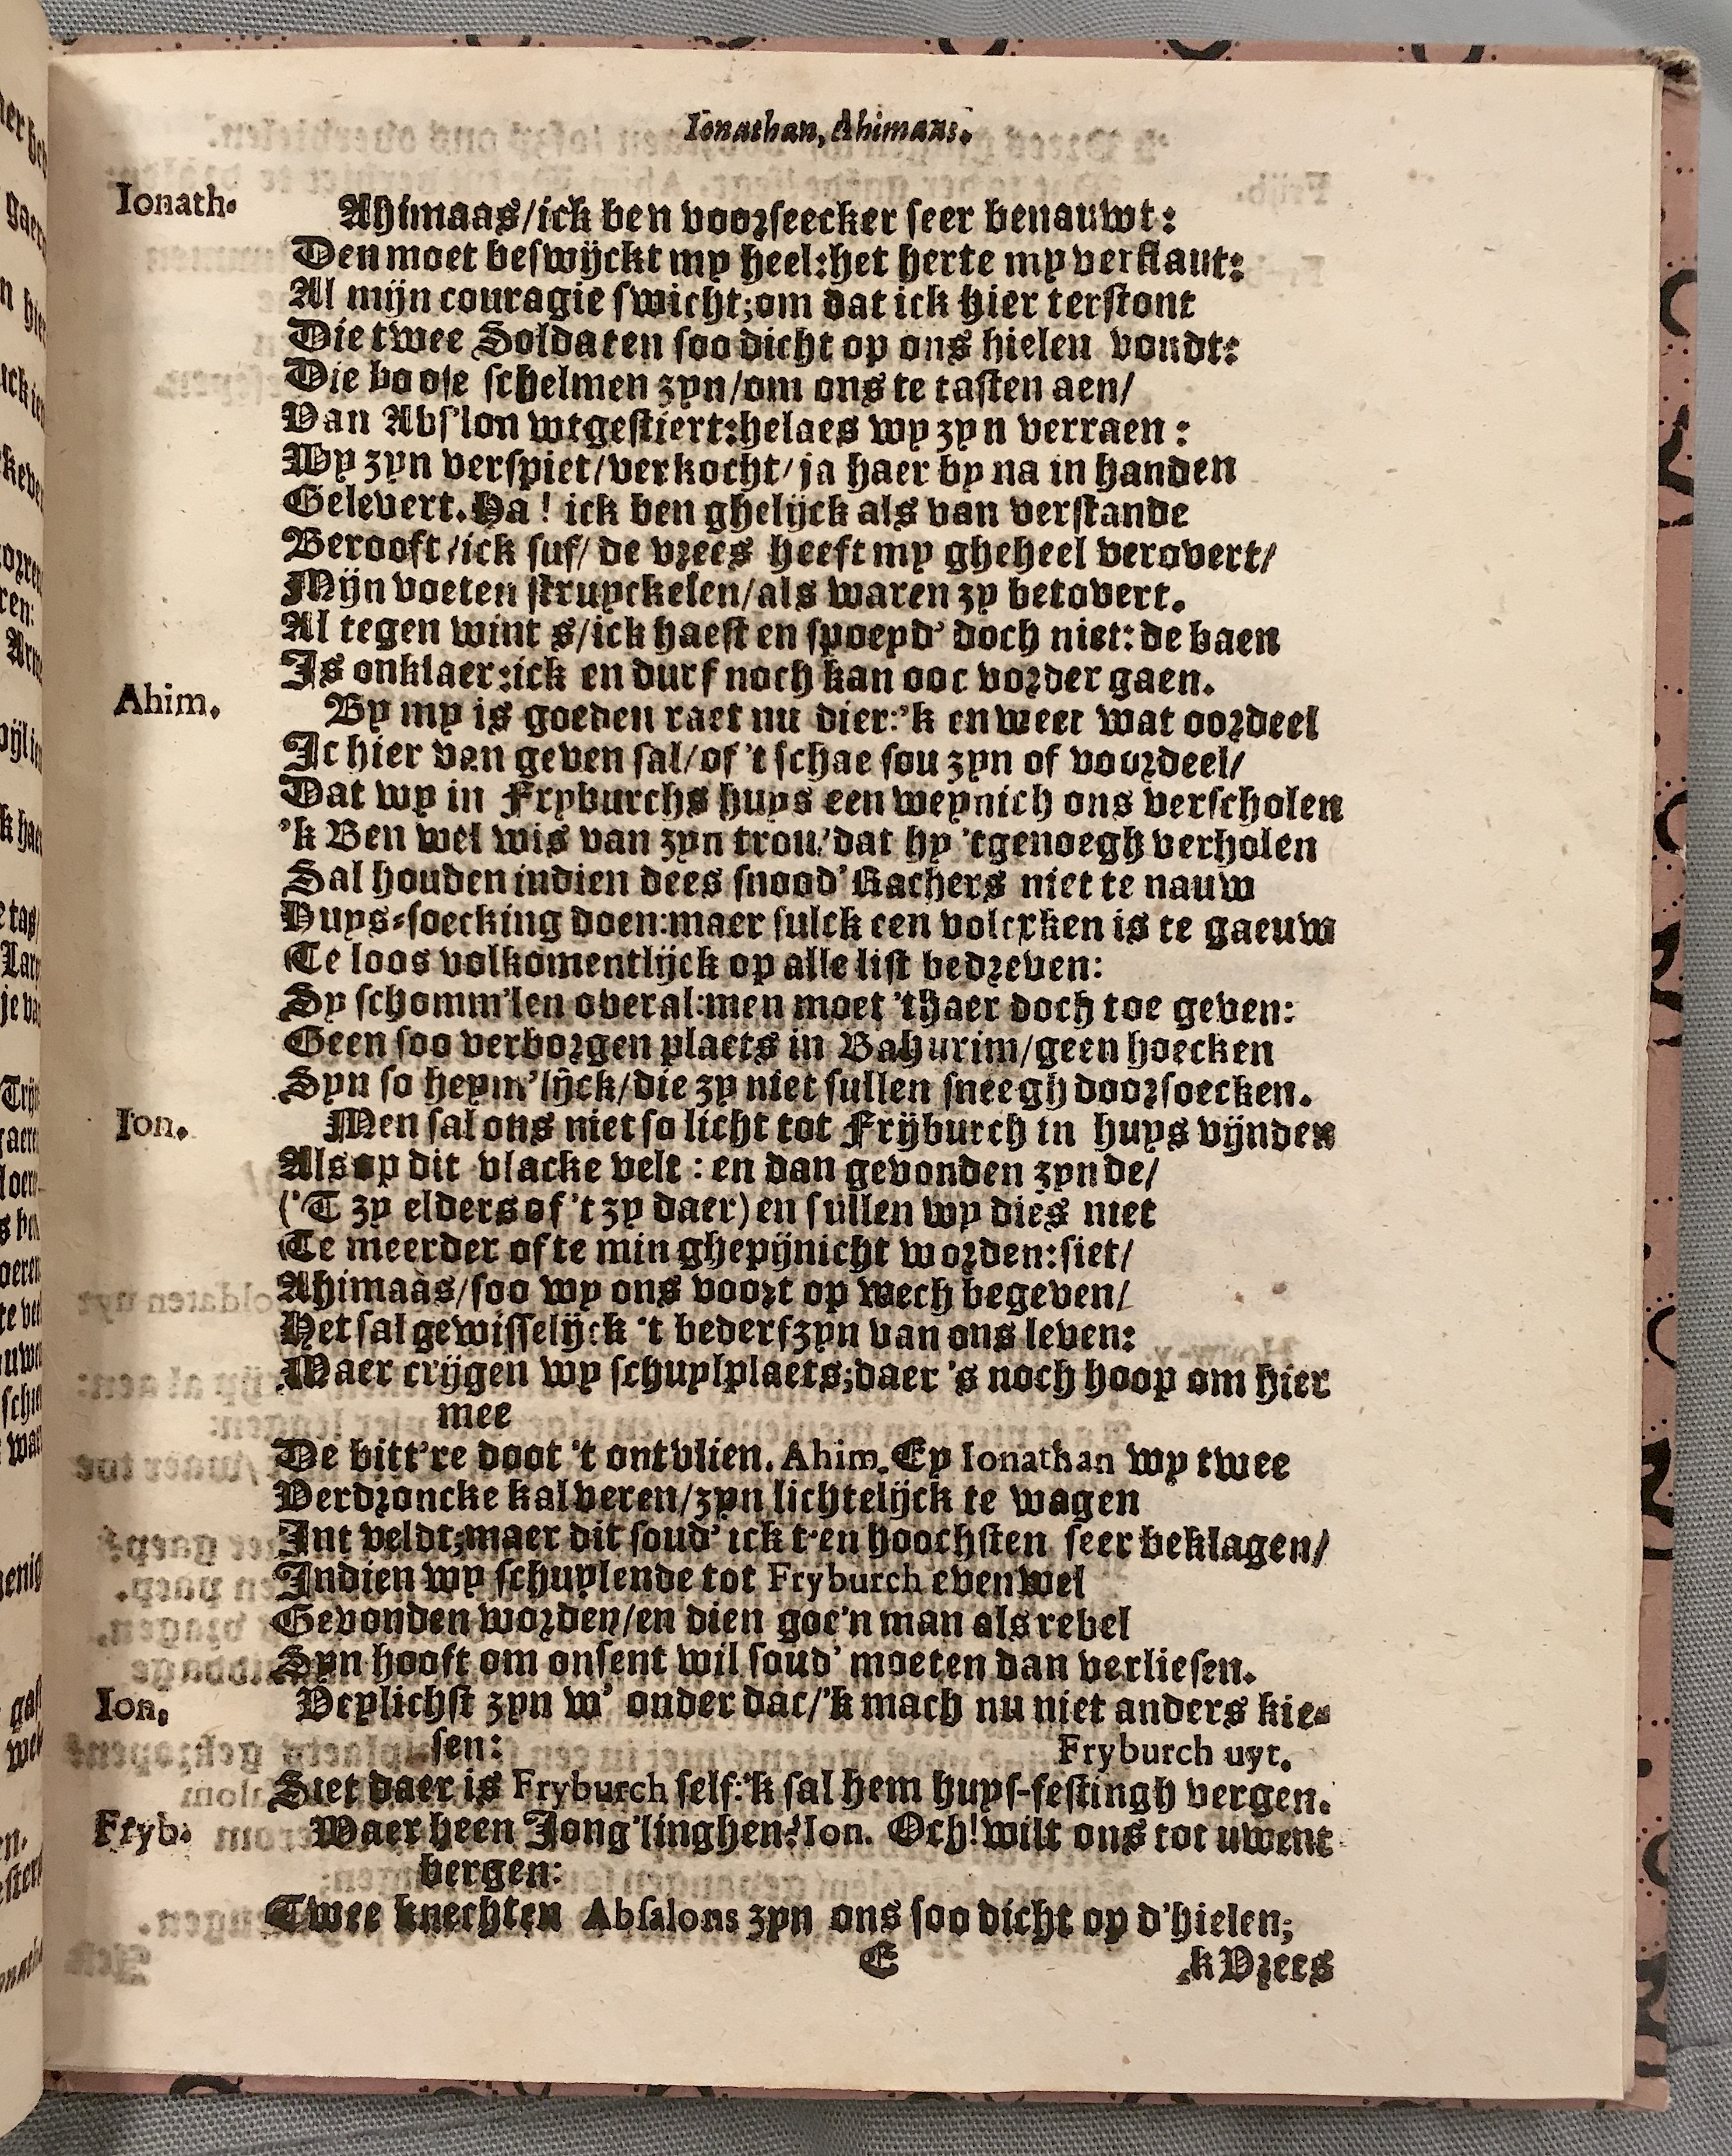 Ionathan, Ahimaas.
Ionath. Ahimaas/ick ben voorseecker seer benauwt:
Den moet beswijckt my heel:het herte my verflaut:
Al mijn couragie swicht;om dat ick hier terstont
Die twee Soldaten soo dicht op ons hielen vondt:
Die boose schelmen zyn/om ons te tasten aen/
Van Abs'lon wtgestiert:helaes wy zyn verraen:
Wy zyn verspiet/verkocht/ja haer by na in handen
Gelevert. Ha! ick ben ghelijck als van verstande
Berooft/ick suf/de vrees heeft my gheheel verovert/
Mijn voeten struyckelen/als waren zy betovert.
Al tegen wint s/ick haest en spoeyd' doch niet:de baen
Is onklaer:ick en durf noch kan ooc vorder gaen.
Ahim. By my is goeden raet nu dier:'k en weet wat oordeel
Ic hier van geven sal/of 't schae sou zyn of voordeel/
Dat wy in Fryburchs huys een weynich ons verscholen
'k Ben wel wis van zyn trou/dat hy 'tgenoegh verholen
Sal houden indien dees snood' Rachers niet te nauw
Huys-soecking doen:maer sulck een volcxken is te gaeuw
Te loos volkomentlijck op alle list bedreven:
Sy schomm'len overal:men moet 'thaer doch toe geven:
Geen soo verborgen plaets in Bahurim/geen hoecken
Syn so heym'lijck/die zy niet sullen sneegh doorsoecken.
Ion. Men sal ons niet so licht tot Frijburch in huys vijnden
Als op dit vlacke velt: en dan gevonden zynde/
('T zy elders of 't zy daer) en sullen wy dies niet
Te meerder ofte min ghepijnicht worden:siet/
Ahimaas/soo wy ons voort op wech begeven/
Het sal gewisselijck 't bederf zyn van ons leven:
Maer crijgen wy schuylplaets;daer 's noch hoop om hier
mee
De bitt're doot 't ontvlien. Ahim. Ey Ionathan wy twee
Verdroncke kalveren/zyn lichtelijck te wagen
Int veldt;maer dit soud' ick t'en hoochsten seer beklagen/
Indien wy schuylende tot Fryburch evenwel
Gevonden worden/en dien goe'n man als rebel
Syn hooft om onsent wil soud' moeten dan verliesen.
Ion. Veylichst zyn w' onder dac/'k mach nu niet anders kie-
sen: Fryburch uyt.
Siet daer is Fryburch self:'k sal hem huys-festingh vergen.
Fryb. Waer heen Jong'linghen? Ion. Och! wilt ons tot uwent
bergen:
Twee knechten Absalons zyn ons soo dicht op d'hielen;
E 'k Vrees